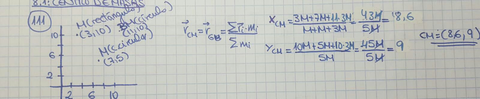 8.1: CENTRO DE MASAS
111
M(rectángulo)
(3,10)
M(círculo)
(11,10)
M(círculo)
(7,5)
10
6
2
2 6 10
r⃗CM = r⃗ = Σ r⃗i·mi / Σ mi
XCM = 3M+7M+11·3M / M+M+3M = 43M / 5M = 8,6
YCM = 10M+5M+10·3M / 5M = 45M / 5M = 9
CM=(8,6,9)